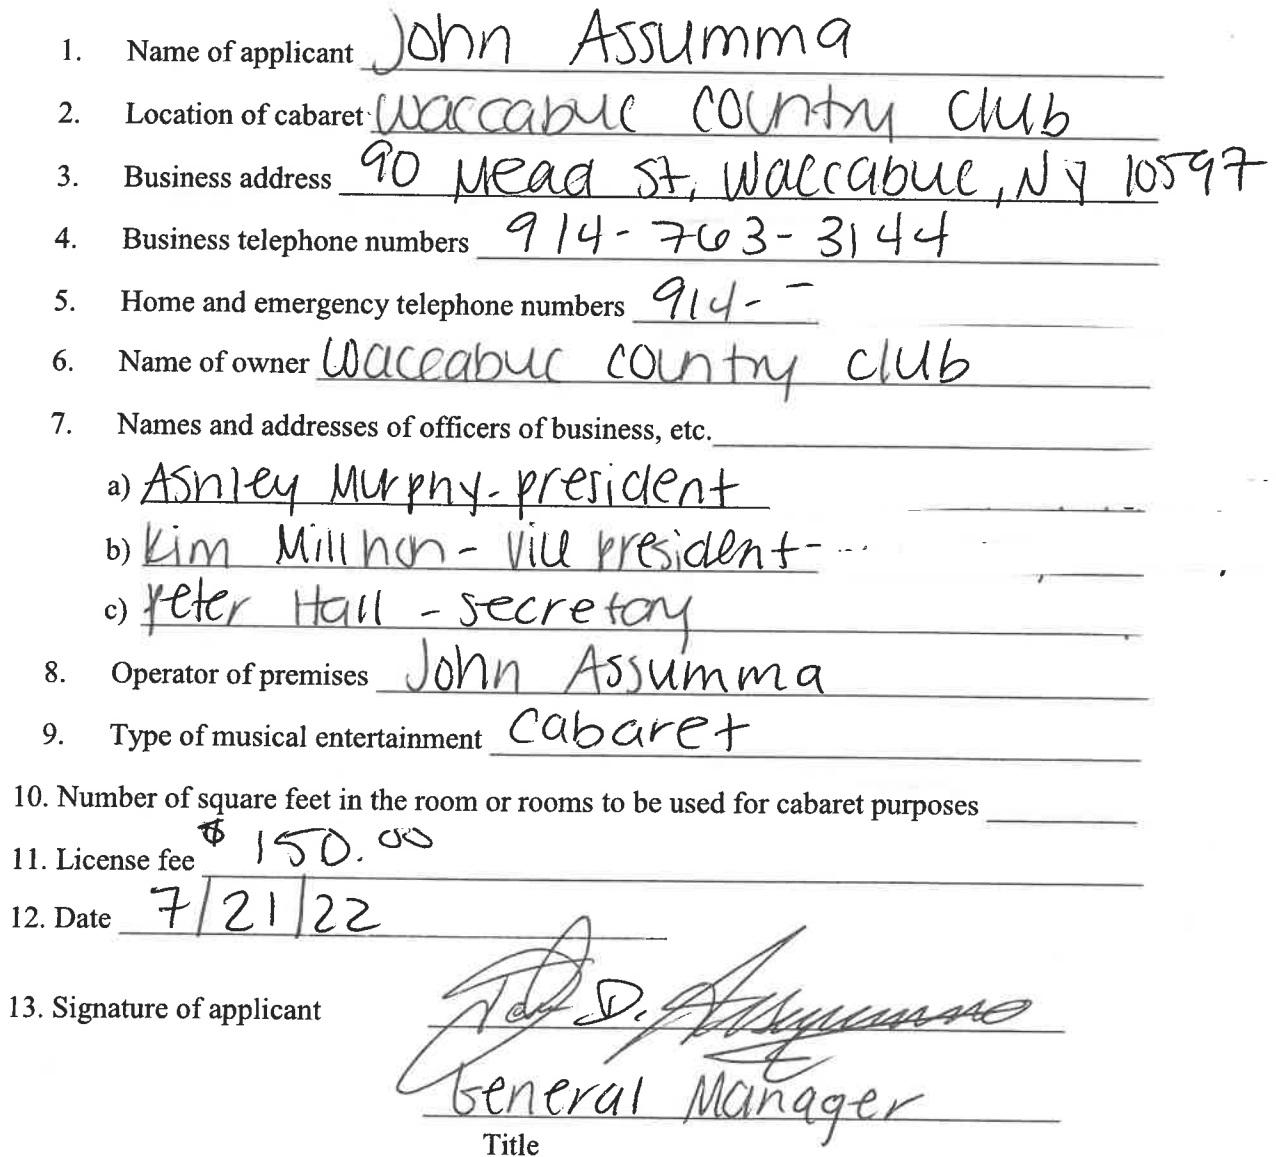 1. Name of applicant John Assumma
2. Location of cabaret Waccabuc Country Club
3. Business address 90 Mead St, Waccabuc, NY 10597
4. Business telephone numbers 914-763-3144
5. Home and emergency telephone numbers 914-
6. Name of owner Waccabuc Country Club
7. Names and addresses of officers of business, etc.
a) Ashley Murphy - president
b) Kim - Vice President -
c) Peter Hall - secretary
8. Operator of premises John Assumma
9. Type of musical entertainment Cabaret
10. Number of square feet in the room or rooms to be used for cabaret purposes
11. License fee $150.00
12. Date 7/21/22
13. Signature of applicant John D. Assumma
General Manager
Title